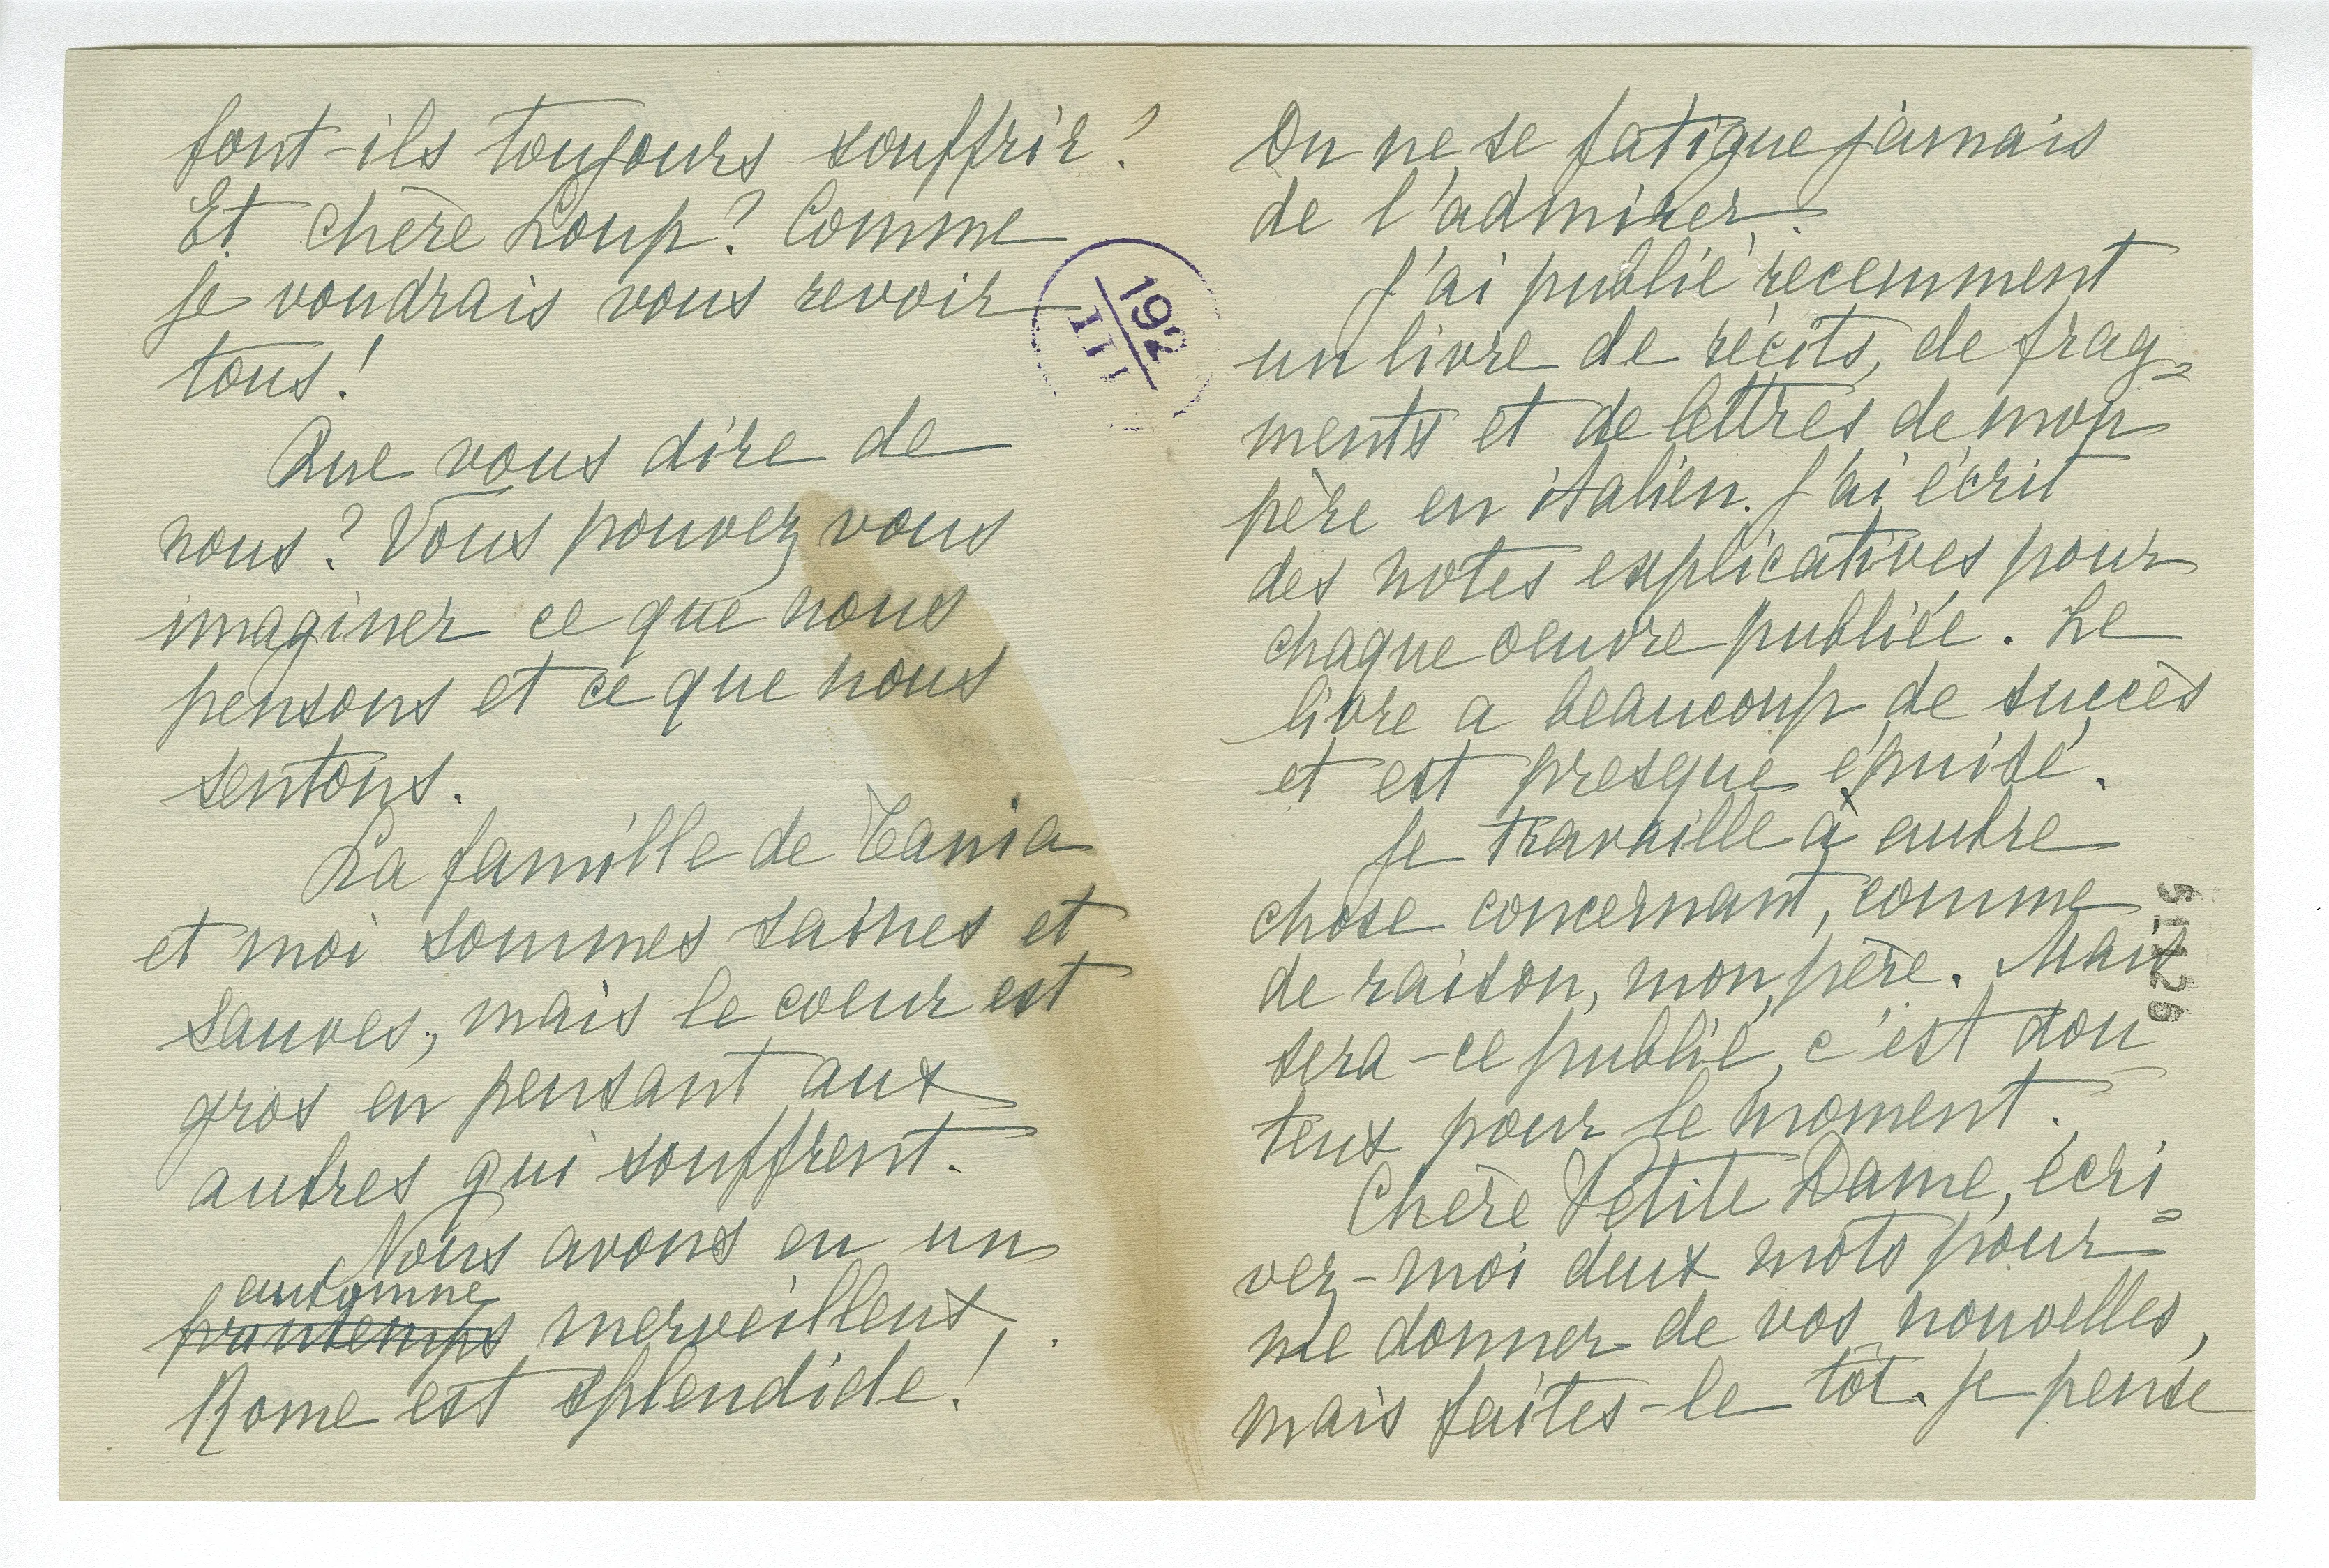 font-ils toujours souffrir?
Et chère Loup? Comme
je voudrais vous revoir
tous!
Que vous dire de
nous? Vous pouvez vous
imaginer ce que nous
pensons et ce que nous
sentons.
La famille de Tania
et moi sommes saines et
sauves, mais le coeur est
gros en pensant aux
autres qui souffrent.
Nous avons eu un
automne
printemps merveilleux.
Rome est splendide!
192
III
On ne se fatigue jamais
de l'admirer.
J'ai publié récemment
un livre de récits, de frag=
ments et de lettres de mon
père en italien. J'ai écrit
des notes explicatives pour
chaque oeuvre publiée. Le
livre a beaucoup de succès
et est presque épuisé.
Je travaille à autre
chose concernant, comme
de raison, mon père. Mais
sera-ce publié, c'est dou=
teux pour le moment.
Chère Petite Dame, écri=
vez-moi deux mots pour
me donner de vos nouvelles,
mais faites-le tôt. Je pense